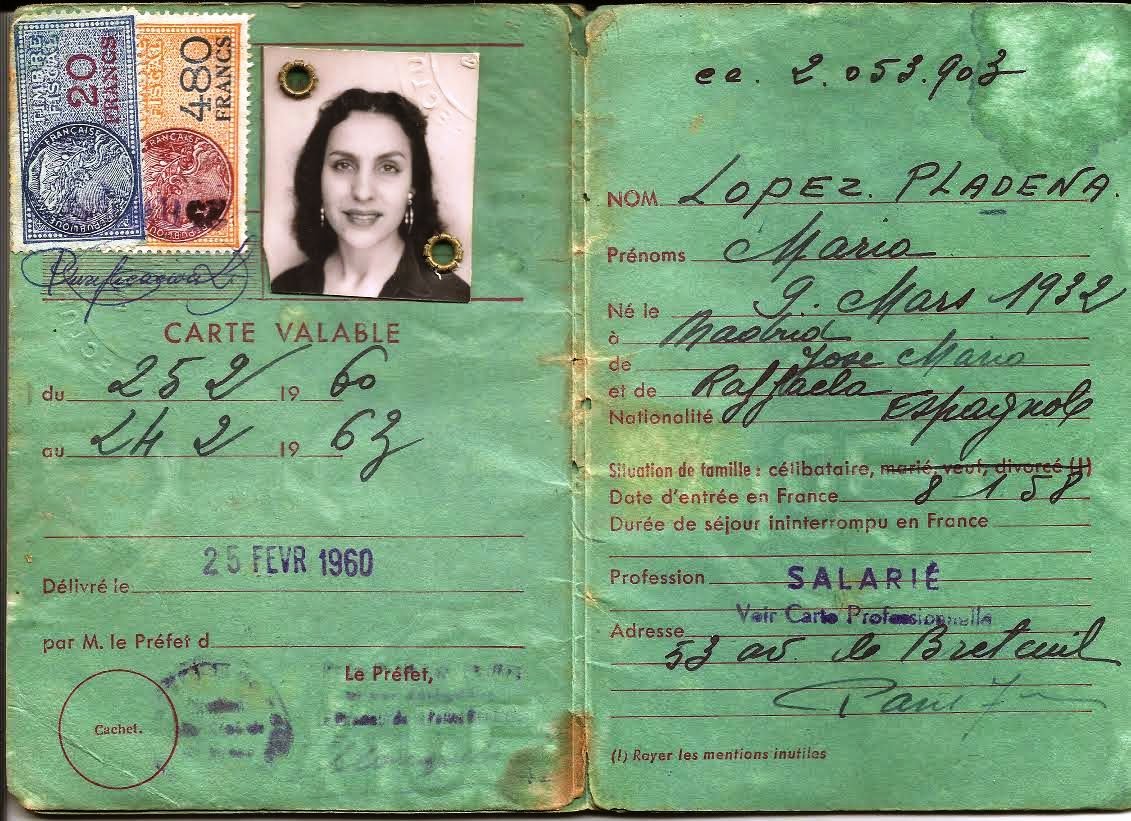 TIMBRE FISCAL
20 FRANCS
FISCAL
480 FRANCS
FRANÇAISE
FRANÇAISE
CARTE VALABLE
du 25 2 19 60
au 24 2 19 63
25 FEVR 1960
Délivré le
par M. le Préfet d
Le Préfet,
Cachet.
ce. 2.053.903
NOM LOPEZ. PLADENA.
Prénoms Maria
Né le 9. Mars 1932
à Madrid
de Jose Maria
et de Raffaela
Nationalité Espagnole
Situation de famille : célibataire, marié, veuf, divorcé (I)
Date d'entrée en France 8 1 58
Durée de séjour ininterrompu en France
Profession SALARIÉ
Voir Carte Professionnelle
Adresse
53 av. de Breteuil
Paris 7
(I) Rayer les mentions inutiles